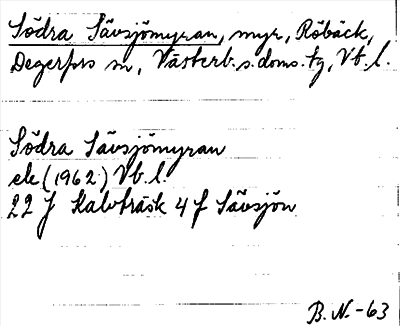 Södra Sävsjömyran, myr, Röbäck,
Degerfors sn, Västerb. s. doms. tg, Vb. l.
Södra Sävsjömyran
ek (1962) Vb. l.
22 J Kalvträsk 4 f Sävsjön
B. N. -63